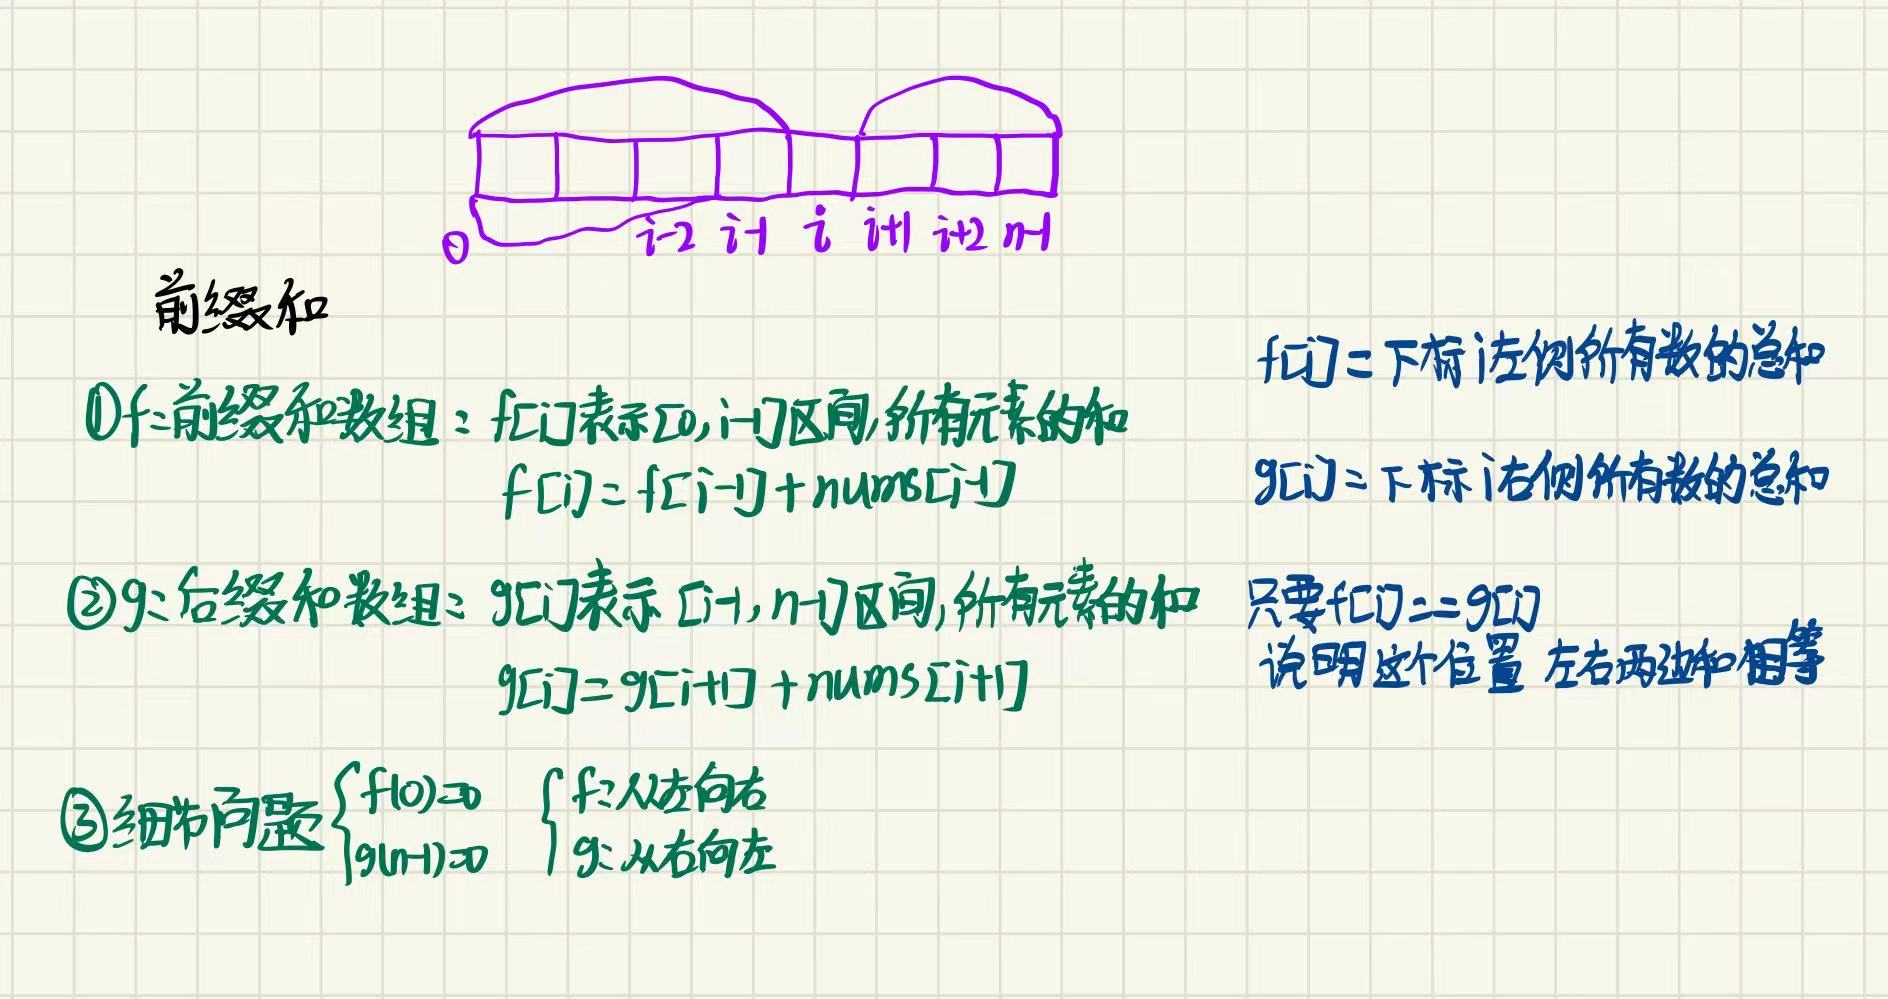 0 i-2 i-1 i i+1 i+2 n-1
前缀和
①f:前缀和数组：f[i]表示[0,i-1]区间,所有元素的和
f[i]=f[i-1]+nums[i-1]
②g:后缀和数组：g[i]表示[i-1,n-1]区间,所有元素的和
g[i]=g[i+1]+nums[i+1]
③细节问题 f(0)=0 f:从左向右
g(n-1)=0 g:从右向左
f[i]=下标i左侧所有数的总和
g[i]=下标i右侧所有数的总和
只要f[i]==g[i]
说明这个位置 左右两边和相等